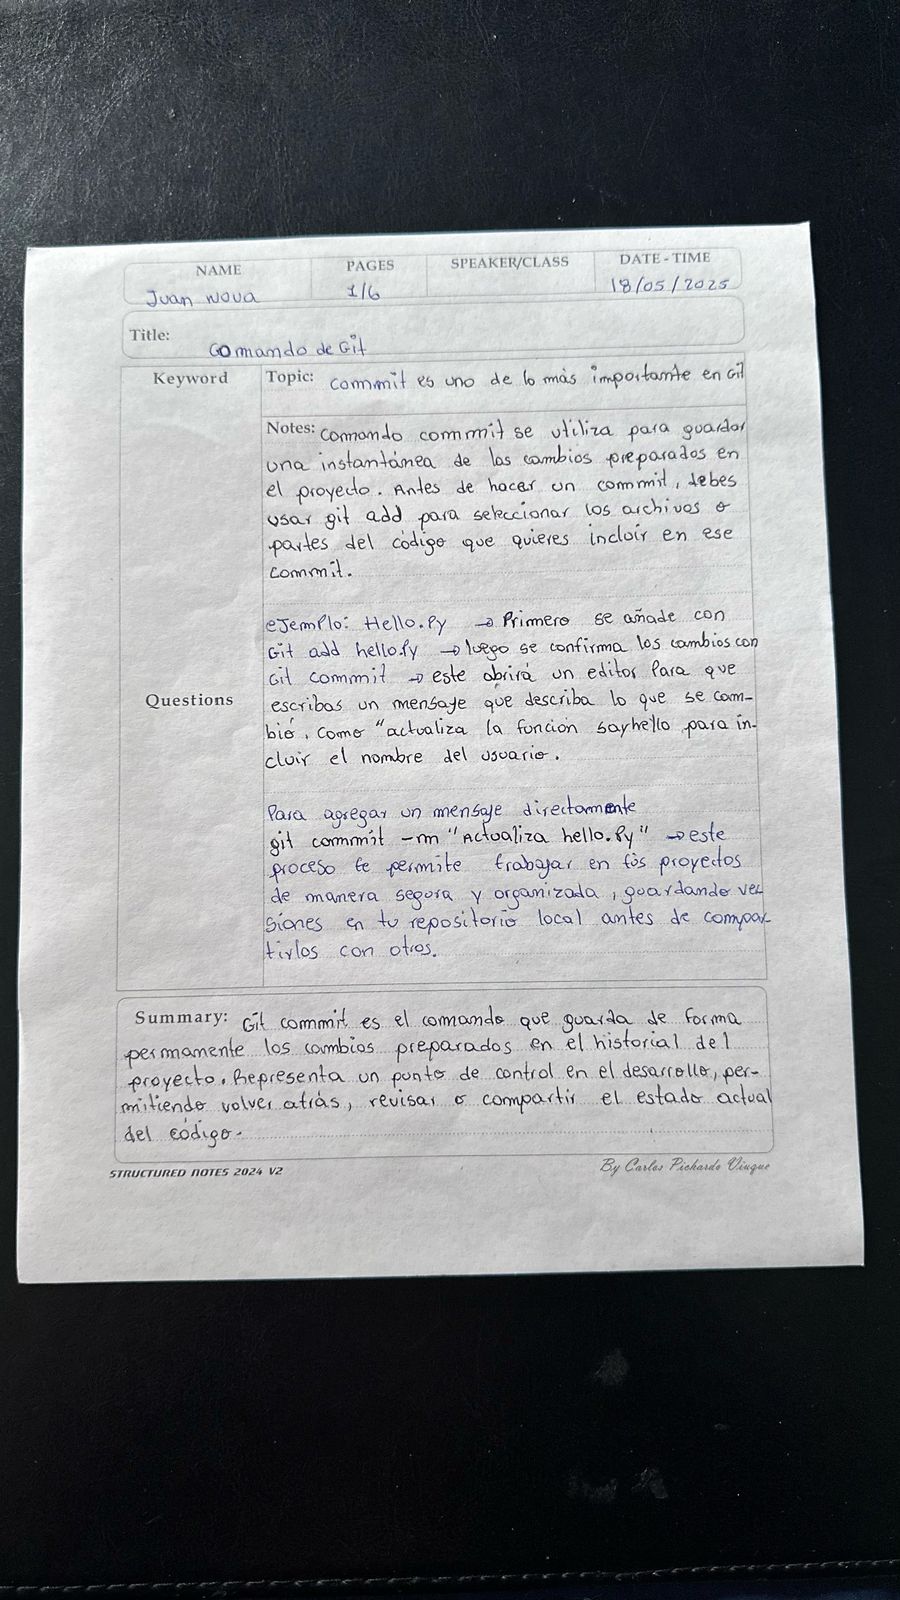 NAME PAGES SPEAKER/CLASS DATE-TIME
Juan Nova 1/6 18/05/2025
Title:
Comando de Git
Keyword
Topic: commit es uno de lo más importante en Git
Notes: comando commit se utiliza para guardar
una instantánea de los cambios preparados en
el proyecto. Antes de hacer un commit, debes
usar git add para seleccionar los archivos o
partes del código que quieres incluir en ese
commit.
ejemplo: Hello.Py → Primero se añade con
Git add hello.Py → luego se confirma los cambios con
Git commit → este abrirá un editor Para que
Questions
escribas un mensaje que describa lo que se cam-
bió, como "actualiza la función sayhello para in-
cluir el nombre del usuario.
Para agregar un mensaje directamente
git commit -m "Actualiza hello.Py" → este
proceso te permite trabajar en tús proyectos
de manera segura y organizada, guardando ver
siones en tu repositorio local antes de compar-
tirlos con otros.
Summary: Git commit es el comando que guarda de forma
permamente los cambios preparados en el historial del
proyecto. Representa un punto de control en el desarrollo, per-
mitiendo volver atrás, revisar o compartir el estado actual
del código.
STRUCTURED NOTES 2024 V2 By Carlos Pichardo Viuque